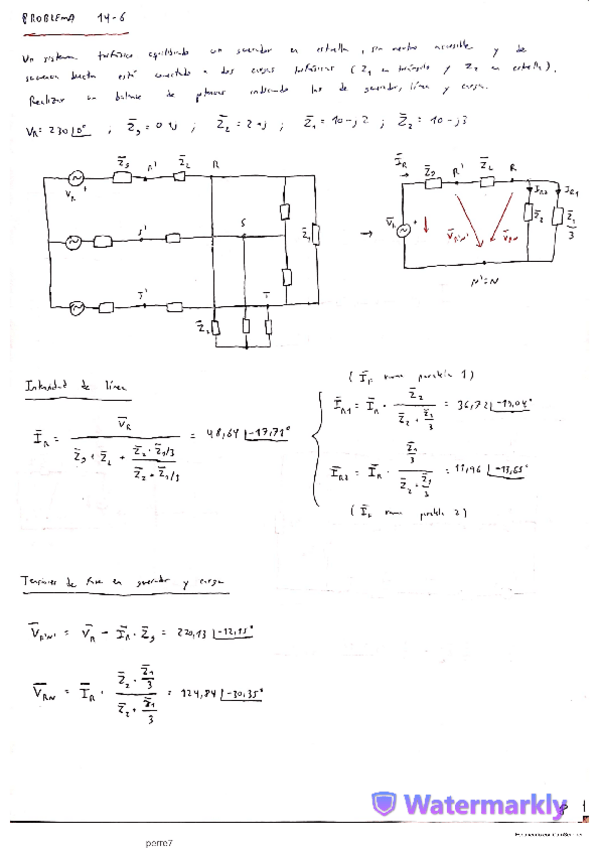 PROBLEMA 14-6
Un sistema trifásico equilibrado un generador en estrella, sin neutro accesible y de
secuencia directa está conectado a dos cargas trifásicas (Z̄1 en triángulo y Z̄2 en estrella).
Realizar un balance de potencias indicando las de generador, línea y cargas.
VR = 230|0° ; Z̄g = ; Z̄L = 2+j ; Z̄1 = 10-j2 ; Z̄2 = 10-j3
Z̄g R' Z̄L R
VR'
S' S
Z̄1
T' T
Z̄2
ĪR Z̄g R' Z̄L R
IR2 IR1
V̄R'N' V̄RN
Z̄2 Z̄1/3
N'=N
Intensidad de línea
ĪR = V̄R / (Z̄g + Z̄L + (Z̄2 · Z̄1/3) / (Z̄2 + Z̄1/3)) = 48,64 |-17,71°
(ĪR rama paralela 1)
ĪR1 = ĪR · Z̄2 / (Z̄2 + Z̄1/3) = 36,72 |-19,04°
ĪR2 = ĪR · (Z̄1/3) / (Z̄2 + Z̄1/3) = 11,96 |-13,65°
(ĪR rama paralela 2)
Tensiones de fase en generador y cargas
V̄R'N' = V̄R - ĪR · Z̄g = 220,13 |-12,15°
V̄RN = ĪR · (Z̄2 · Z̄1/3) / (Z̄2 + Z̄1/3) = 124,84 |-30,35°
Watermarkly
1
perre7